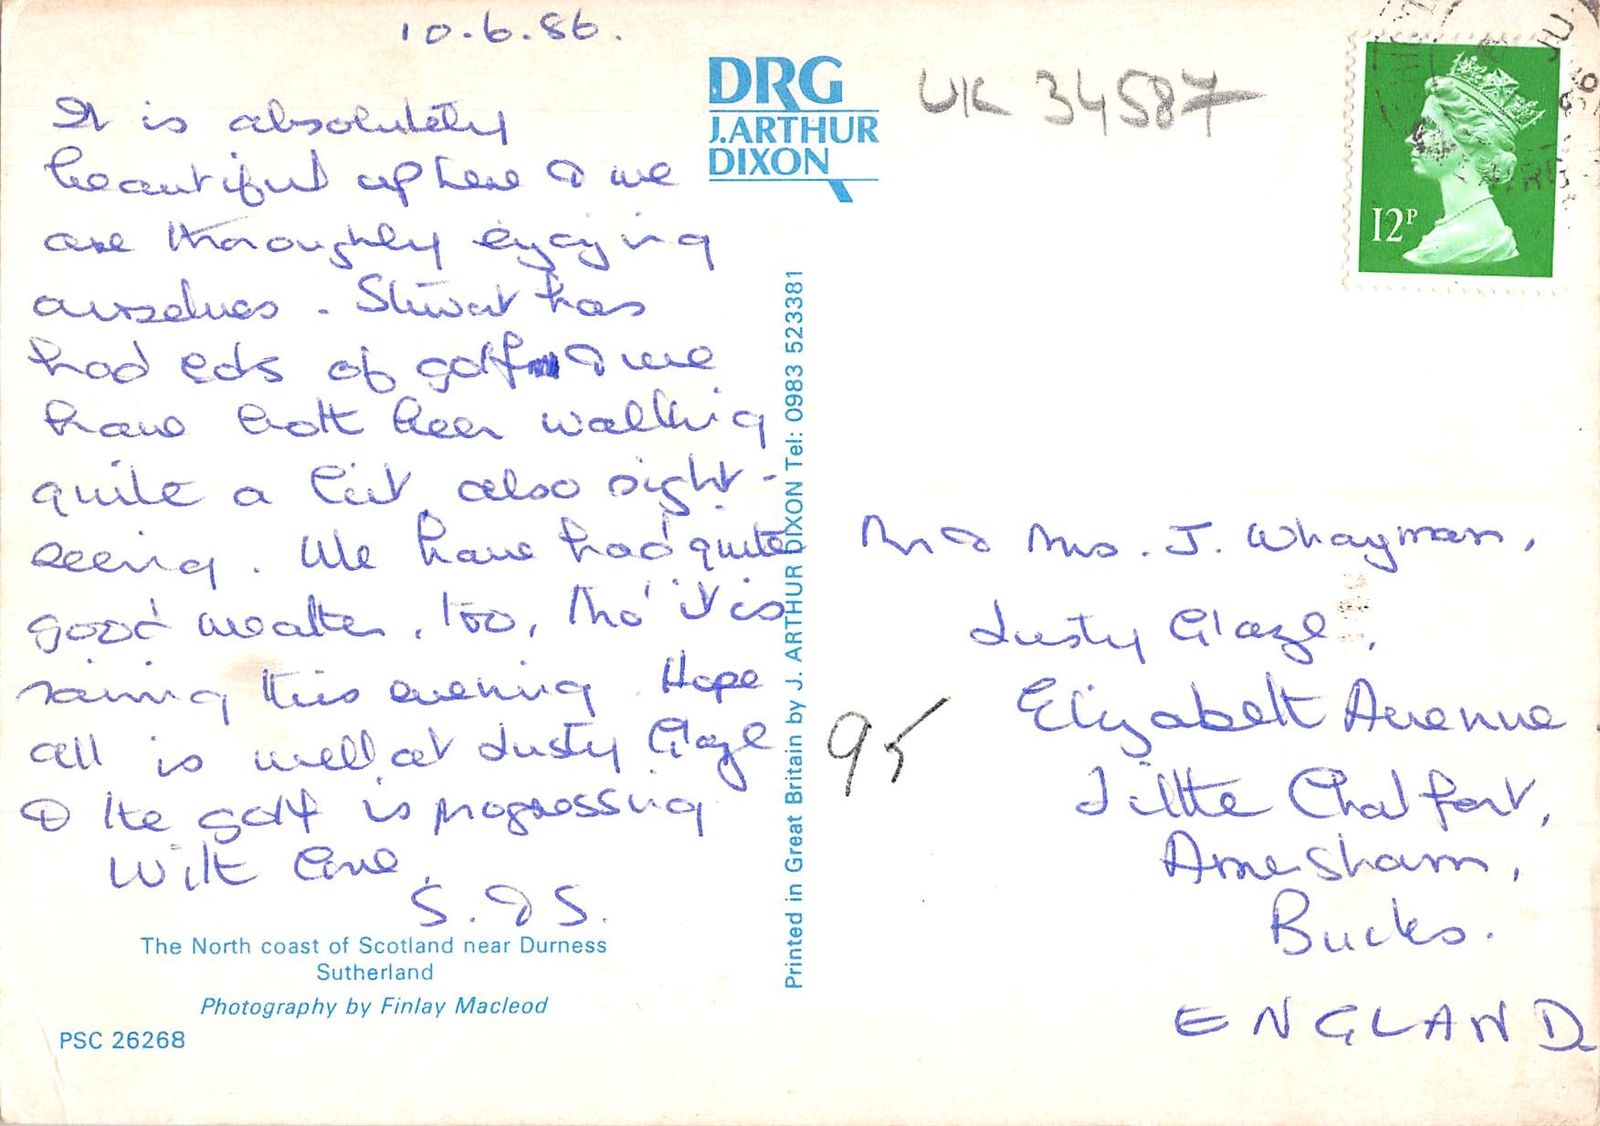 10.6.86.
It is absolutely
beautiful up here & we
are thoroughly enjoying
ourselves. Stuart has
had lots of golf & we
have both been walking
quite a bit, also sight-
seeing. We have had quite
good weather, too, tho' it is
raining this evening. Hope
all is well at Dusty Glaze
& the golf is progressing
With love,
S. & S.
The North coast of Scotland near Durness
Sutherland
Photography by Finlay Macleod
PSC 26268
DRG
J.ARTHUR
DIXON
Printed in Great Britain by J. ARTHUR DIXON Tel: 0983 523381
UK 34587
12P
95
Mr & Mrs. J. Whayman,
Dusty Glaze,
Elizabeth Avenue.
Little Chalfont,
Amersham,
Bucks.
ENGLAND